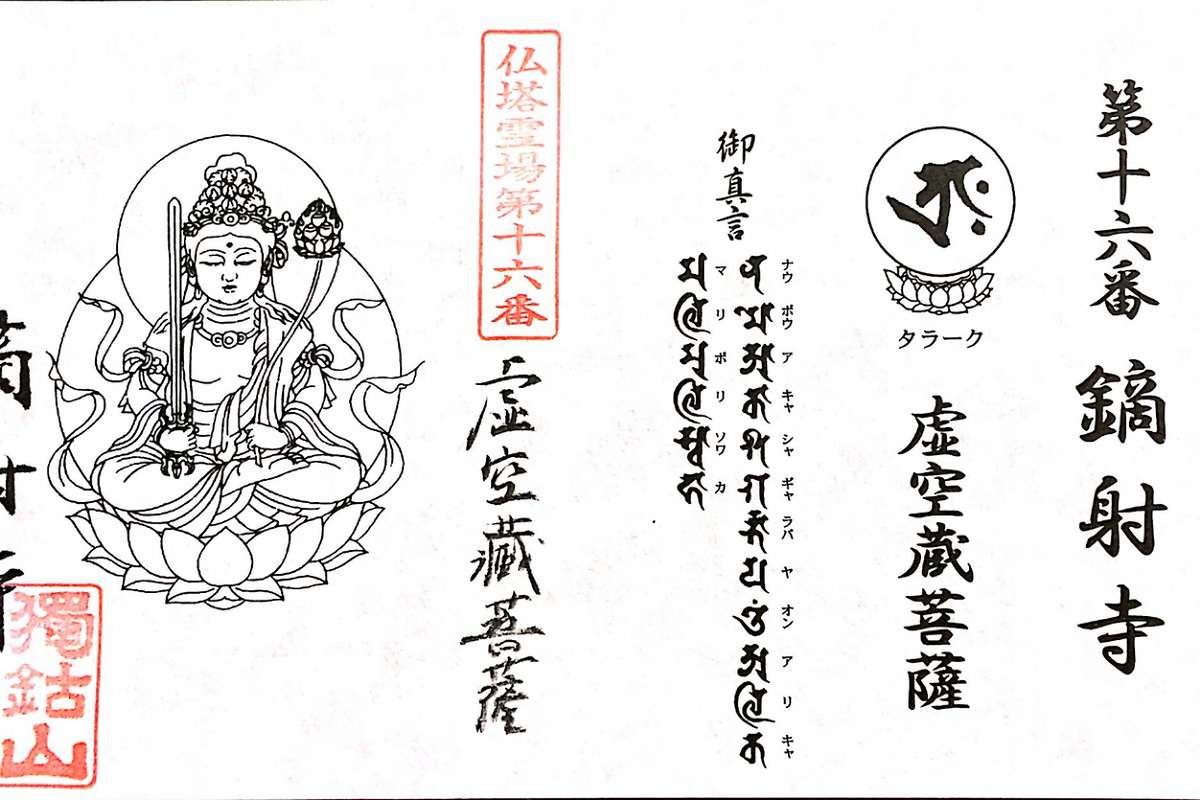 第十六番 鏑射寺
タラーク
虚空蔵菩薩
御真言
ナウ ボウ ア キャ シャ ギャ ラバ ヤ オン ア リ キャ
マ リ ボ リ ソワ カ
仏塔霊場第十六番
虚空藏菩薩
獨鈷山